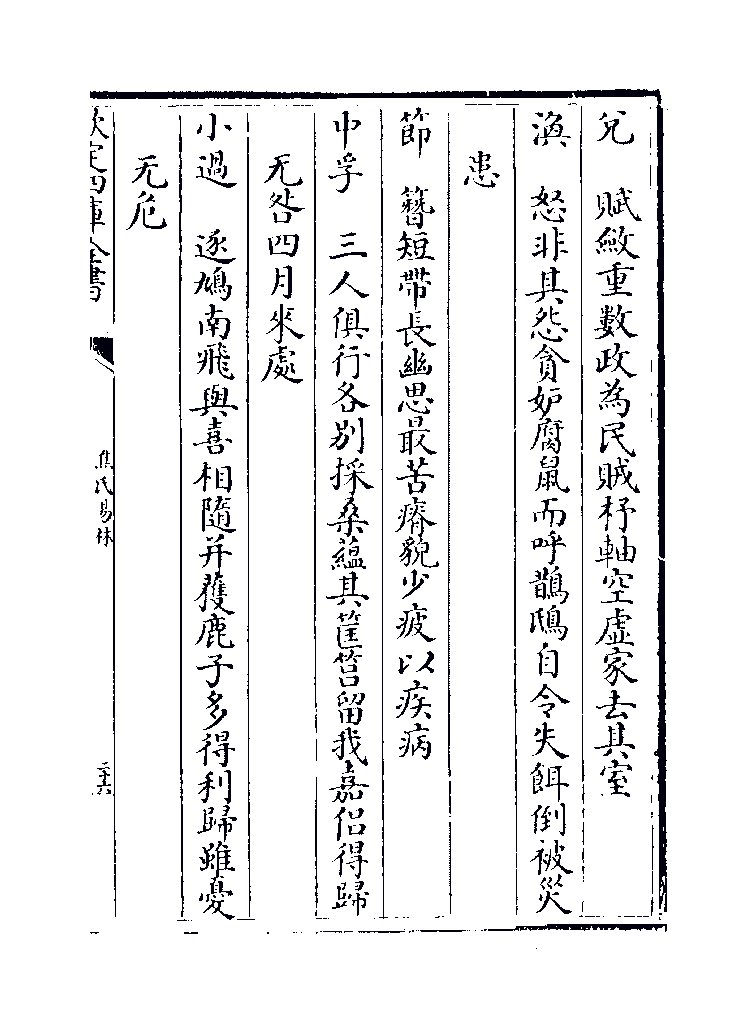 兌　賦斂重數政為民賊杼軸空虛家去其室
渙　怒非其怨貪妒腐鼠而呼鵲鴟自令失餌倒被災
患
節　簪短帶長幽思最苦瘠貌少疲以疾病
中孚　三人俱行各別採桑蘊其筐筥留我嘉侣得歸
无咎四月來處
小過　逐鳩南飛與喜相隨并獲鹿子多得利歸雖憂
无危
欽定四庫全書
焦氏易林
三十六